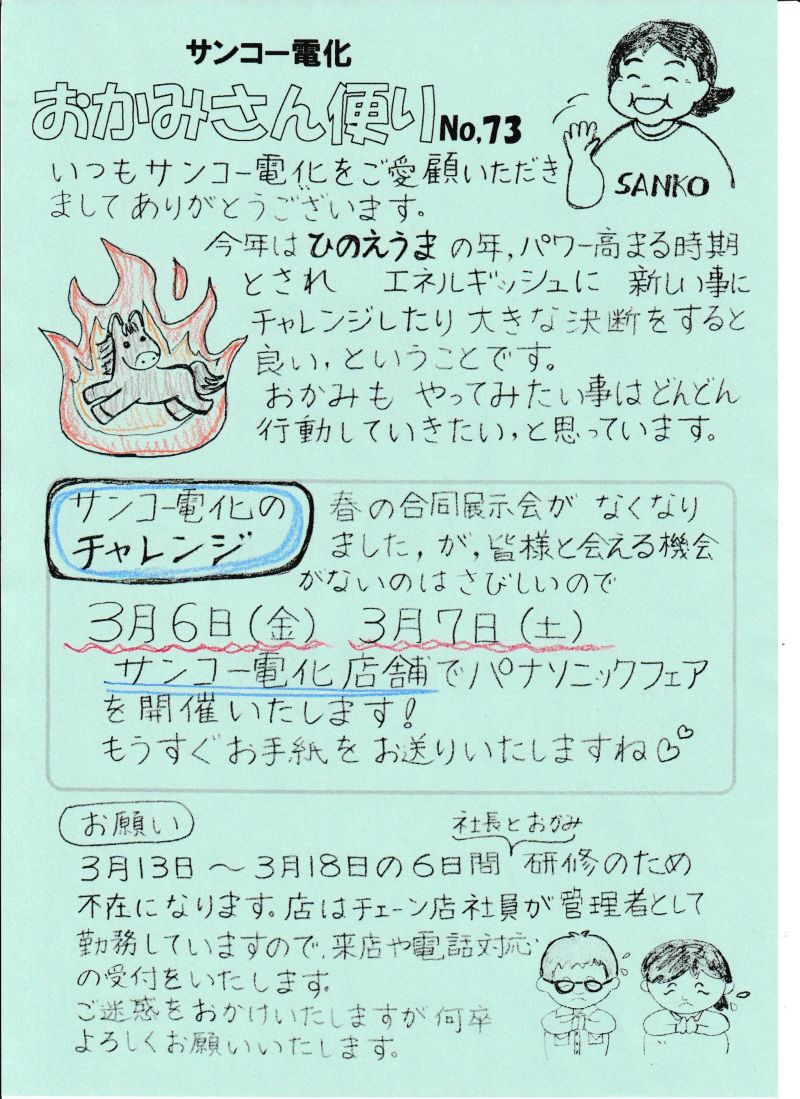 サンコー電化
おかみさん便り No,73
SANKO
いつもサンコー電化をご愛顧いただき
ましてありがとうございます。
今年はひのえうまの年,パワー高まる時期
とされ エネルギッシュに 新しい事に
チャレンジしたり大きな決断をすると
良い,ということです。
おかみも やってみたい事はどんどん
行動していきたい,と思っています。
サンコー電化の
チャレンジ
春の合同展示会が なくなり
ました,が,皆様と会える機会
がないのはさびしいので
3月6日(金) 3月7日(土)
サンコー電化店舗でパナソニックフェア
を開催いたします!
もうすぐお手紙をお送りいたしますね♡♡
お願い
社長とおかみ
3月13日~3月18日の6日間 研修のため
不在になります。店はチェーン店社員が管理者として
勤務していますので,来店や電話対応
の受付をいたします。
ご迷惑をおかけいたしますが何卒
よろしくお願いいたします。